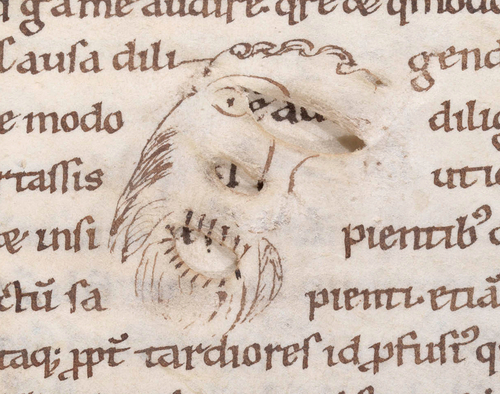 game audire. qre de qmodo
Causa dili gend
e modo dilig
rtassis utio
de insi pientib⁹
ctū sa pienti. etiā
taq; ꝓpt̄ tardiores id ꝓfusi⁹ q